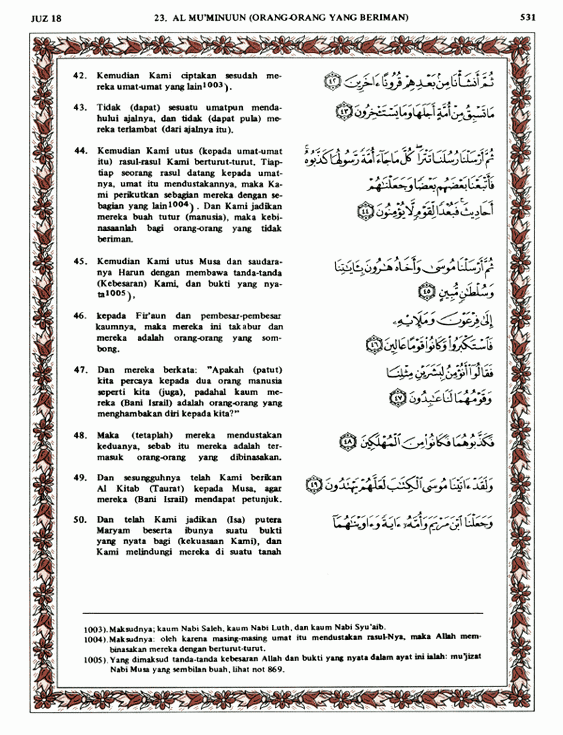 JUZ 18 23. AL MU'MINUUN (ORANG-ORANG YANG BERIMAN) 531
42. Kemudian Kami ciptakan sesudah me-
reka umat-umat yang lain1003).
ثُمَّ أَنشَأْنَا مِنۢ بَعْدِهِمْ قُرُونًا ءَاخَرِينَ ﴿٤٢﴾
43. Tidak (dapat) sesuatu umatpun menda-
hului ajalnya, dan tidak (dapat pula) me-
reka terlambat (dari ajalnya itu).
مَا تَسْبِقُ مِنْ أُمَّةٍ أَجَلَهَا وَمَا يَسْتَـْٔخِرُونَ ﴿٤٣﴾
44. Kemudian Kami utus (kepada umat-umat
itu) rasul-rasul Kami berturut-turut. Tiap-
tiap seorang rasul datang kepada umat-
nya, umat itu mendustakannya, maka Ka-
mi perikutkan sebagian mereka dengan se-
bagian yang lain1004). Dan Kami jadikan
mereka buah tutur (manusia), maka kebi-
nasaanlah bagi orang-orang yang tidak
beriman.
ثُمَّ أَرْسَلْنَا رُسُلَنَا تَتْرَا كُلَّ مَا جَاءَ أُمَّةً رَّسُولُهَا كَذَّبُوهُ
فَأَتْبَعْنَا بَعْضَهُم بَعْضًا وَجَعَلْنَٰهُمْ
أَحَادِيثَ فَبُعْدًا لِّقَوْمٍ لَّا يُؤْمِنُونَ ﴿٤٤﴾
45. Kemudian Kami utus Musa dan saudara-
nya Harun dengan membawa tanda-tanda
(Kebesaran) Kami, dan bukti yang nya-
ta1005),
ثُمَّ أَرْسَلْنَا مُوسَىٰ وَأَخَاهُ هَٰرُونَ بِـَٔايَٰتِنَا
وَسُلْطَٰنٍ مُّبِينٍ ﴿٤٥﴾
46. kepada Fir'aun dan pembesar-pembesar
kaumnya, maka mereka ini takabur dan
mereka adalah orang-orang yang som-
bong.
إِلَىٰ فِرْعَوْنَ وَمَلَإِيْهِۦ
فَٱسْتَكْبَرُوا۟ وَكَانُوا۟ قَوْمًا عَالِينَ ﴿٤٦﴾
47. Dan mereka berkata: "Apakah (patut)
kita percaya kepada dua orang manusia
seperti kita (juga), padahal kaum me-
reka (Bani Israil) adalah orang-orang yang
menghambakan diri kepada kita?"
فَقَالُوٓا۟ أَنُؤْمِنُ لِبَشَرَيْنِ مِثْلِنَا
وَقَوْمُهُمَا لَنَا عَٰبِدُونَ ﴿٤٧﴾
48. Maka (tetaplah) mereka mendustakan
keduanya, sebab itu mereka adalah ter-
masuk orang-orang yang dibinasakan.
فَكَذَّبُوهُمَا فَكَانُوا۟ مِنَ ٱلْمُهْلَكِينَ ﴿٤٨﴾
49. Dan sesungguhnya telah Kami berikan
Al Kitab (Taurat) kepada Musa, agar
mereka (Bani Israil) mendapat petunjuk.
وَلَقَدْ ءَاتَيْنَا مُوسَى ٱلْكِتَٰبَ لَعَلَّهُمْ يَهْتَدُونَ ﴿٤٩﴾
50. Dan telah Kami jadikan (Isa) putera
Maryam beserta ibunya suatu bukti
yang nyata bagi (kekuasaan Kami), dan
Kami melindungi mereka di suatu tanah
وَجَعَلْنَا ٱبْنَ مَرْيَمَ وَأُمَّهُۥٓ ءَايَةً وَءَاوَيْنَٰهُمَآ
1003). Maksudnya; kaum Nabi Saleh, kaum Nabi Luth, dan kaum Nabi Syu'aib.
1004). Maksudnya: oleh karena masing-masing umat itu mendustakan rasul-Nya, maka Allah mem-
binasakan mereka dengan berturut-turut.
1005). Yang dimaksud tanda-tanda kebesaran Allah dan bukti yang nyata dalam ayat ini ialah: mu'jizat
Nabi Musa yang sembilan buah, lihat not 869.